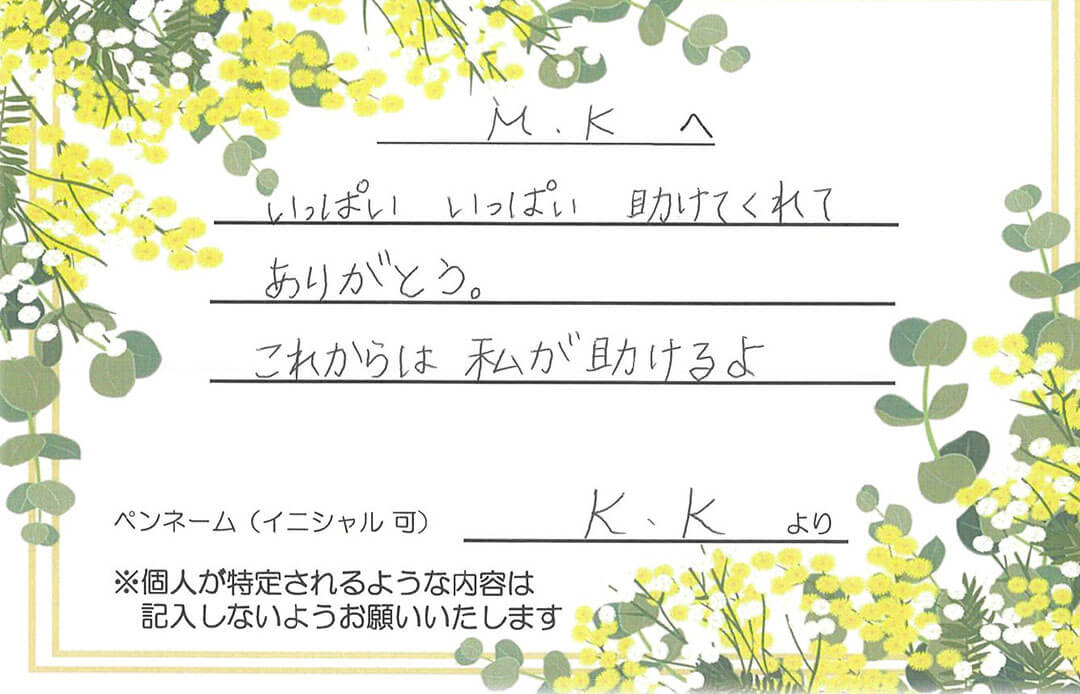 M.K へ
いっぱい いっぱい 助けてくれて
ありがとう。
これからは 私が助けるよ
ペンネーム（イニシャル 可） K、K より
※個人が特定されるような内容は
記入しないようお願いいたします